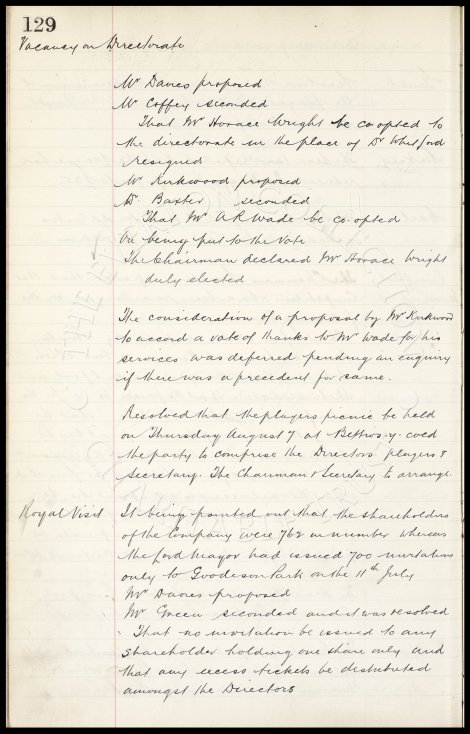 129
Vacancy on Directorate
Mr Davies proposed
Mr Coffey seconded
That Mr Horace Wright be co opted to
the directorate in the place of Dr Whitford
resigned
Mr Kirkwood proposed
Dr Baxter seconded
That Mr A R Wade be co-opted
On being put to the vote
The Chairman declared Mr Horace Wright
duly elected
The consideration of a proposal by Mr Kirkwood
to accord a vote of thanks to Mr Wade for his
services was deferred pending an enquiry
if there was a precedent for same.
Resolved that the players picnic be held
on Thursday August 7 at Bettws-y-coed
the party to comprise the Directors players &
Secretary. The Chairman & Secretary to arrange.
Royal Visit
It being pointed out that the shareholders
of the Company were 762 in number whereas
the Lord Mayor had issued 700 invitations
only to Goodison Park on the 11th July
Mr Davies proposed
Mr Green seconded and it was resolved
That no invitation be issued to any
shareholder holding one share only and
that any excess tickets be distributed
amongst the Directors